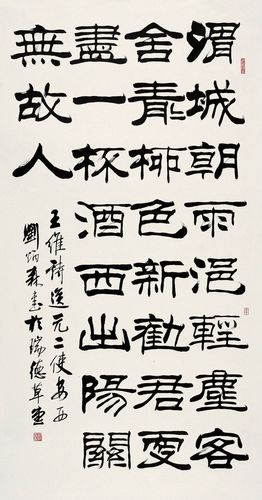 渭城朝雨浥輕塵客
舍青々柳色新勸君更
盡一杯酒西出陽關
無故人
王維詩送元二使安西
劉炳森書於瑞德草堂